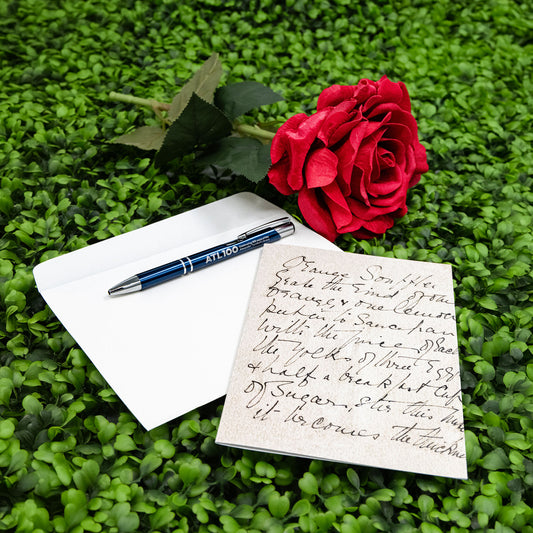 ATL100
Orange Souffle
Grate the rind of one
orange & one lemon
put in a Saucepan
with the juice of each
the yolks of three Eggs
& half a breakfast Cup
of Sugar, stir this
it becomes the thickness